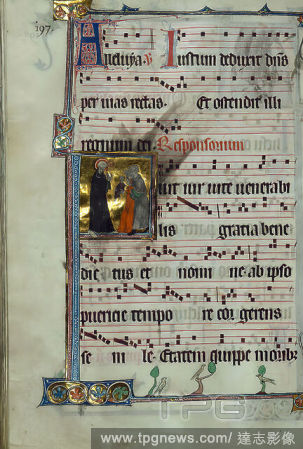 197.
Alleluya. V Iustum deduxit dn̄s
per vias rectas. Et ostendit illi
regnum dei Responsorium
Fuit vir vite venerabi
lis gracia bene
dic tus et nomi ne ab ipso
puericie tempo re cor gerens
se ni le Etatem quippe moribz
TPG
www.tpgnews.com/達志影像